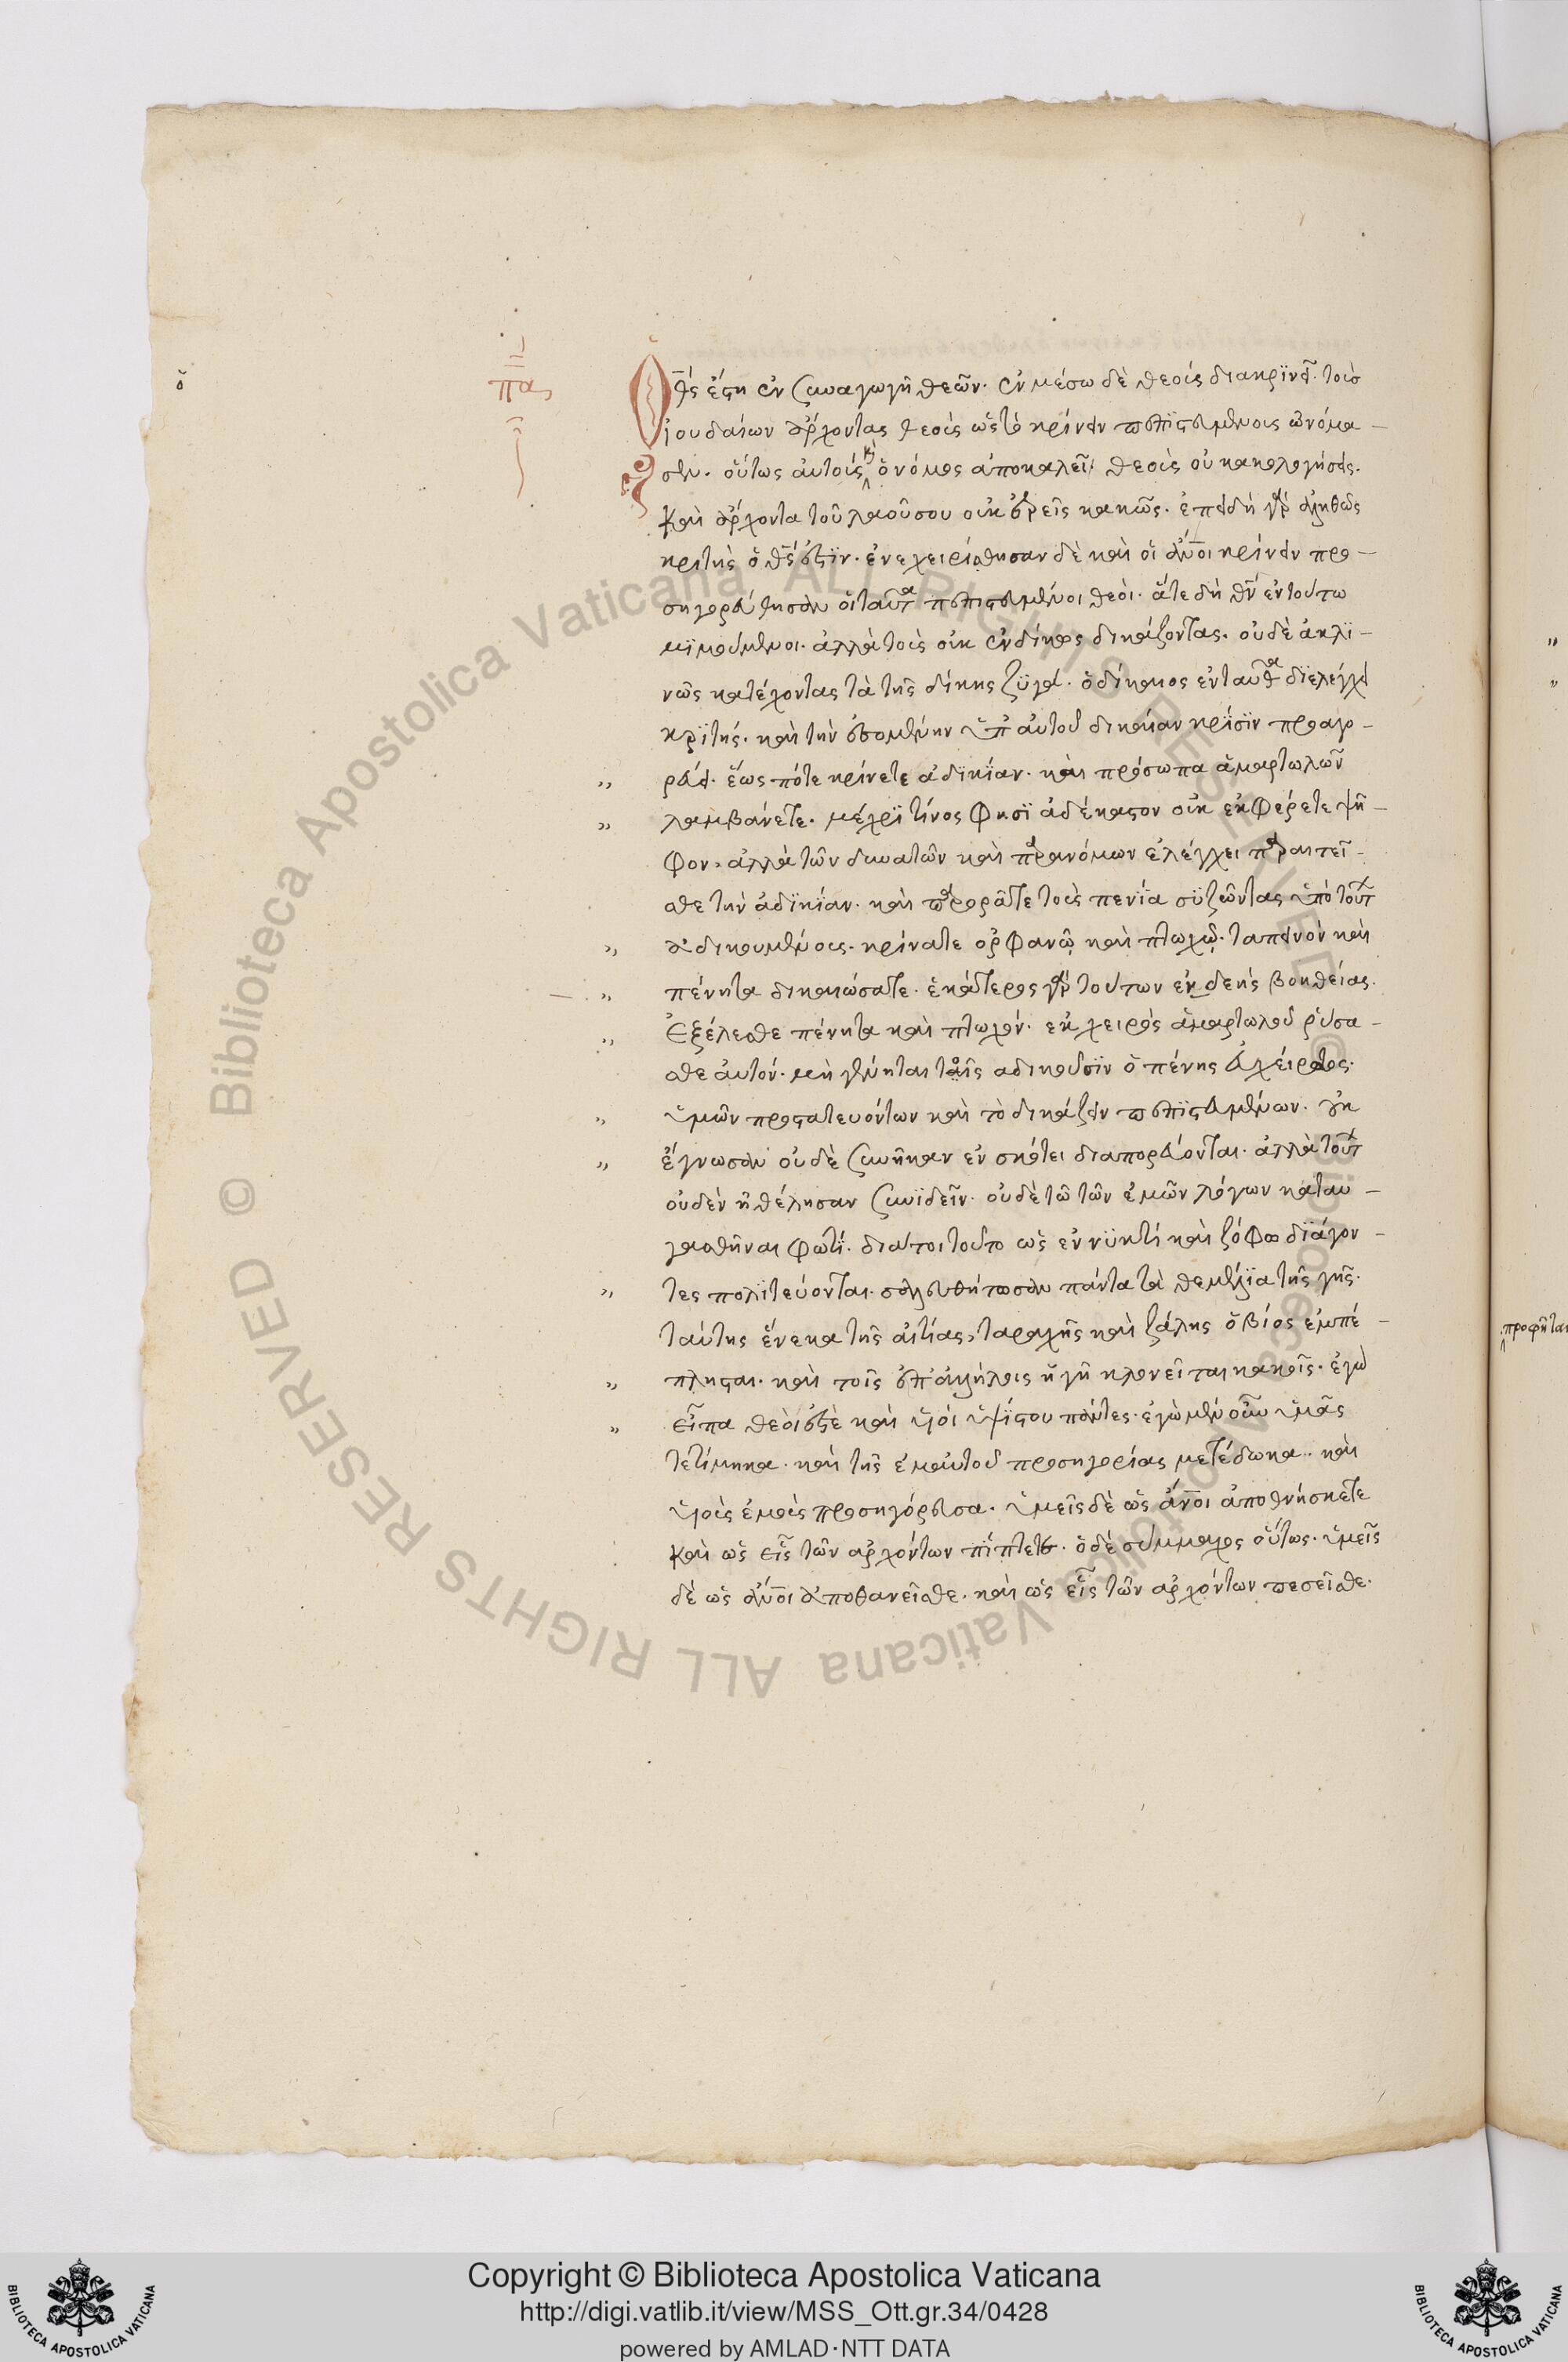 ὁ
πα
Ὁ θς ἔστη ἐν συναγωγῆ θεῶν· ἐν μέσω δὲ θεοὺς διακρϊνεῖ· τοὺσ
ἰουδαίων ἄρχοντας θεοὺς ὡς τὸ κρίνειν πεπϊστευμένους ὠνόμα–
σεν· οὕτως αὐτοὺς κὴ ὁ νόμος ἀποκαλεῖ· θεοὺς οὐ κακολογήσεις·
καὶ ἄρχοντα τοῦ λαοῦ σου οὐκ ἐρεῖς κακῶς· ἐπειδὴ γὰρ ἀληθῶς
κριτὴς ὁ θς ἐστϊν· ἐνεχειρίσθησαν δὲ καὶ οἱ ἄνοι κρίνειν προ–
σηγορεύθησαν οἱ ταῦτα πεπιστευμένοι θεοί· ἅτε δὴ θν ἐν τούτω
μϊμούμενοι· ἀλλὰ τοὺς οὐκ ἐνδίκως δικάζοντας· οὐδὲ ἀκλϊ–
νῶς κατέχοντας τὰ τῆς δίκης ζϋγά· ὁ δίκαιος ἐνταῦθα διελέγχει
κρϊτής· καὶ τὴν ἐσομένην ὑπ αὐτοῦ δικαίαν κρίσϊν προαγο–
ρεύει· ἕως πότε κρίνετε ἀδϊκϊαν· καὶ πρόσωπα ἁμαρτωλῶν
λαμβάνετε· μέχρϊ τίνος φησϊ ἀδέκαστον οὐκ ἐκφέρετε ψῆ–
φον· ἀλλὰ τῶν δυνατῶν καὶ παρανόμων ἐλέγχει παραιτεῖ–
σθε τὴν ἀδϊκϊαν· καὶ παροράτε τοὺς πενϊα σϋζῶντας ὑπὸ τούτων
ἀδικουμένους· κρίνατε ὀρφανῷ καὶ πτωχῷ· ταπεινὸν καὶ
πένητα δικαιώσατε· ἑκάτερος γὰρ τούτων ἐκδεὴς βοηθείας·
Ἐξέλεσθε πένητα καὶ πτωχόν· ἐκ χειρὸς ἁμαρτωλοῦ ῥύσα–
σθε αὐτόν· μὴ γένηται τοῖς αδικοῦσϊν ὁ πένης εὐχείρωτος·
ὑμῶν προστατευόντων καὶ τὸ δικάζειν πεπϊστευμένων· οὐκ
ἔγνωσαν οὐδὲ συνῆκαν ἐν σκότει διαπορεύονται· ἀλλὰ τούτων
οὐδὲν ἠθέλησαν συνϊδεῖν· οὐδὲ τῶ τῶν ἐμῶν λόγων καταυ–
γασθῆναι φωτϊ· διά τοι τοῦτο ὡς ἐν νϋκτὶ καὶ ζόφω δϊάγον–
τες πολϊτεύονται· σαλευθήτωσαν πάντα τὰ θεμέλϊα τῆς γῆς·
ταύτης ἕνεκα τῆς αἰτίας, ταραχῆς καὶ ζάλης ὁ βίος ἐμπέ–
πλησται· καὶ τοῖς ἐπαλλήλοις ἡ γῆ κλονεῖται κακοῖς· ἐγὼ
εἶπα θεοὶ ἐστὲ καὶ υἱοὶ ὑψϊστου πάντες· ἐγὼ μὲν οὖν ὑμᾶς
τετίμηκα· καὶ τῆς ἐμαυτοῦ προσηγορίας μετέδωκα· καὶ
υἱοὺς ἐμοὺς προσηγόρευσα· ὑμεῖς δὲ ὡς ἄνοι ἀποθνήσκετε
καὶ ὡς εἷς τῶν ἀρχόντων πϊπτετε· ὁ δὲ σύμμαχος οὕτως· ὑμεῖς
δὲ ὡς ἄνοι ἀποθανεῖσθε· καὶ ὡς εἷς τῶν ἀρχόντων πεσεῖσθε·
προφῆται
© Biblioteca Apostolica Vaticana ALL RIGHTS RESERVED © Biblioteca Apostolica Vaticana ALL RIGHTS RESERVED
Copyright © Biblioteca Apostolica Vaticana
http://digi.vatlib.it/view/MSS_Ott.gr.34/0428
powered by AMLAD·NTT DATA
BIBLIOTECA APOSTOLICA VATICANA
BIBLIOTECA APOSTOLICA VATICANA